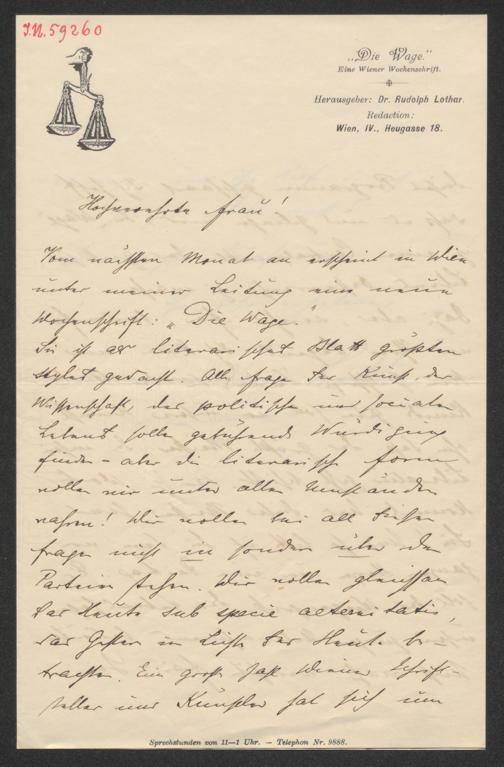 J.N. 59260
„Die Wage."
Eine Wiener Wochenschrift.
Herausgeber: Dr. Rudolph Lothar.
Redaction:
Wien, IV., Heugasse 18.
Hochverehrte Frau!
Vom nächsten Monat an erscheint in Wien
unter meiner Leitung eine neue
Wochenschrift: „Die Wage."
Sie ist als literarisches Blatt größten
Styles gedacht. Alle Fragen der Kunst, der
Wissenschaft, des politischen und socialen
Lebens sollen gebührende Würdigung
finden – aber die literarische Form
wollen wir unter allen Umständen
wahren! Wir wollen bei all diesen
Fragen nicht in sondern über den
Parteien stehen. Wir wollen gleichsam
das Heute sub specie aeternitatis,
das Gestern im Lichte des Heute be-
trachten. Ein große Zahl Wiener Schrift-
steller und Künstler hat sich um
Sprechstunden von 11—1 Uhr. — Telephon Nr. 9888.